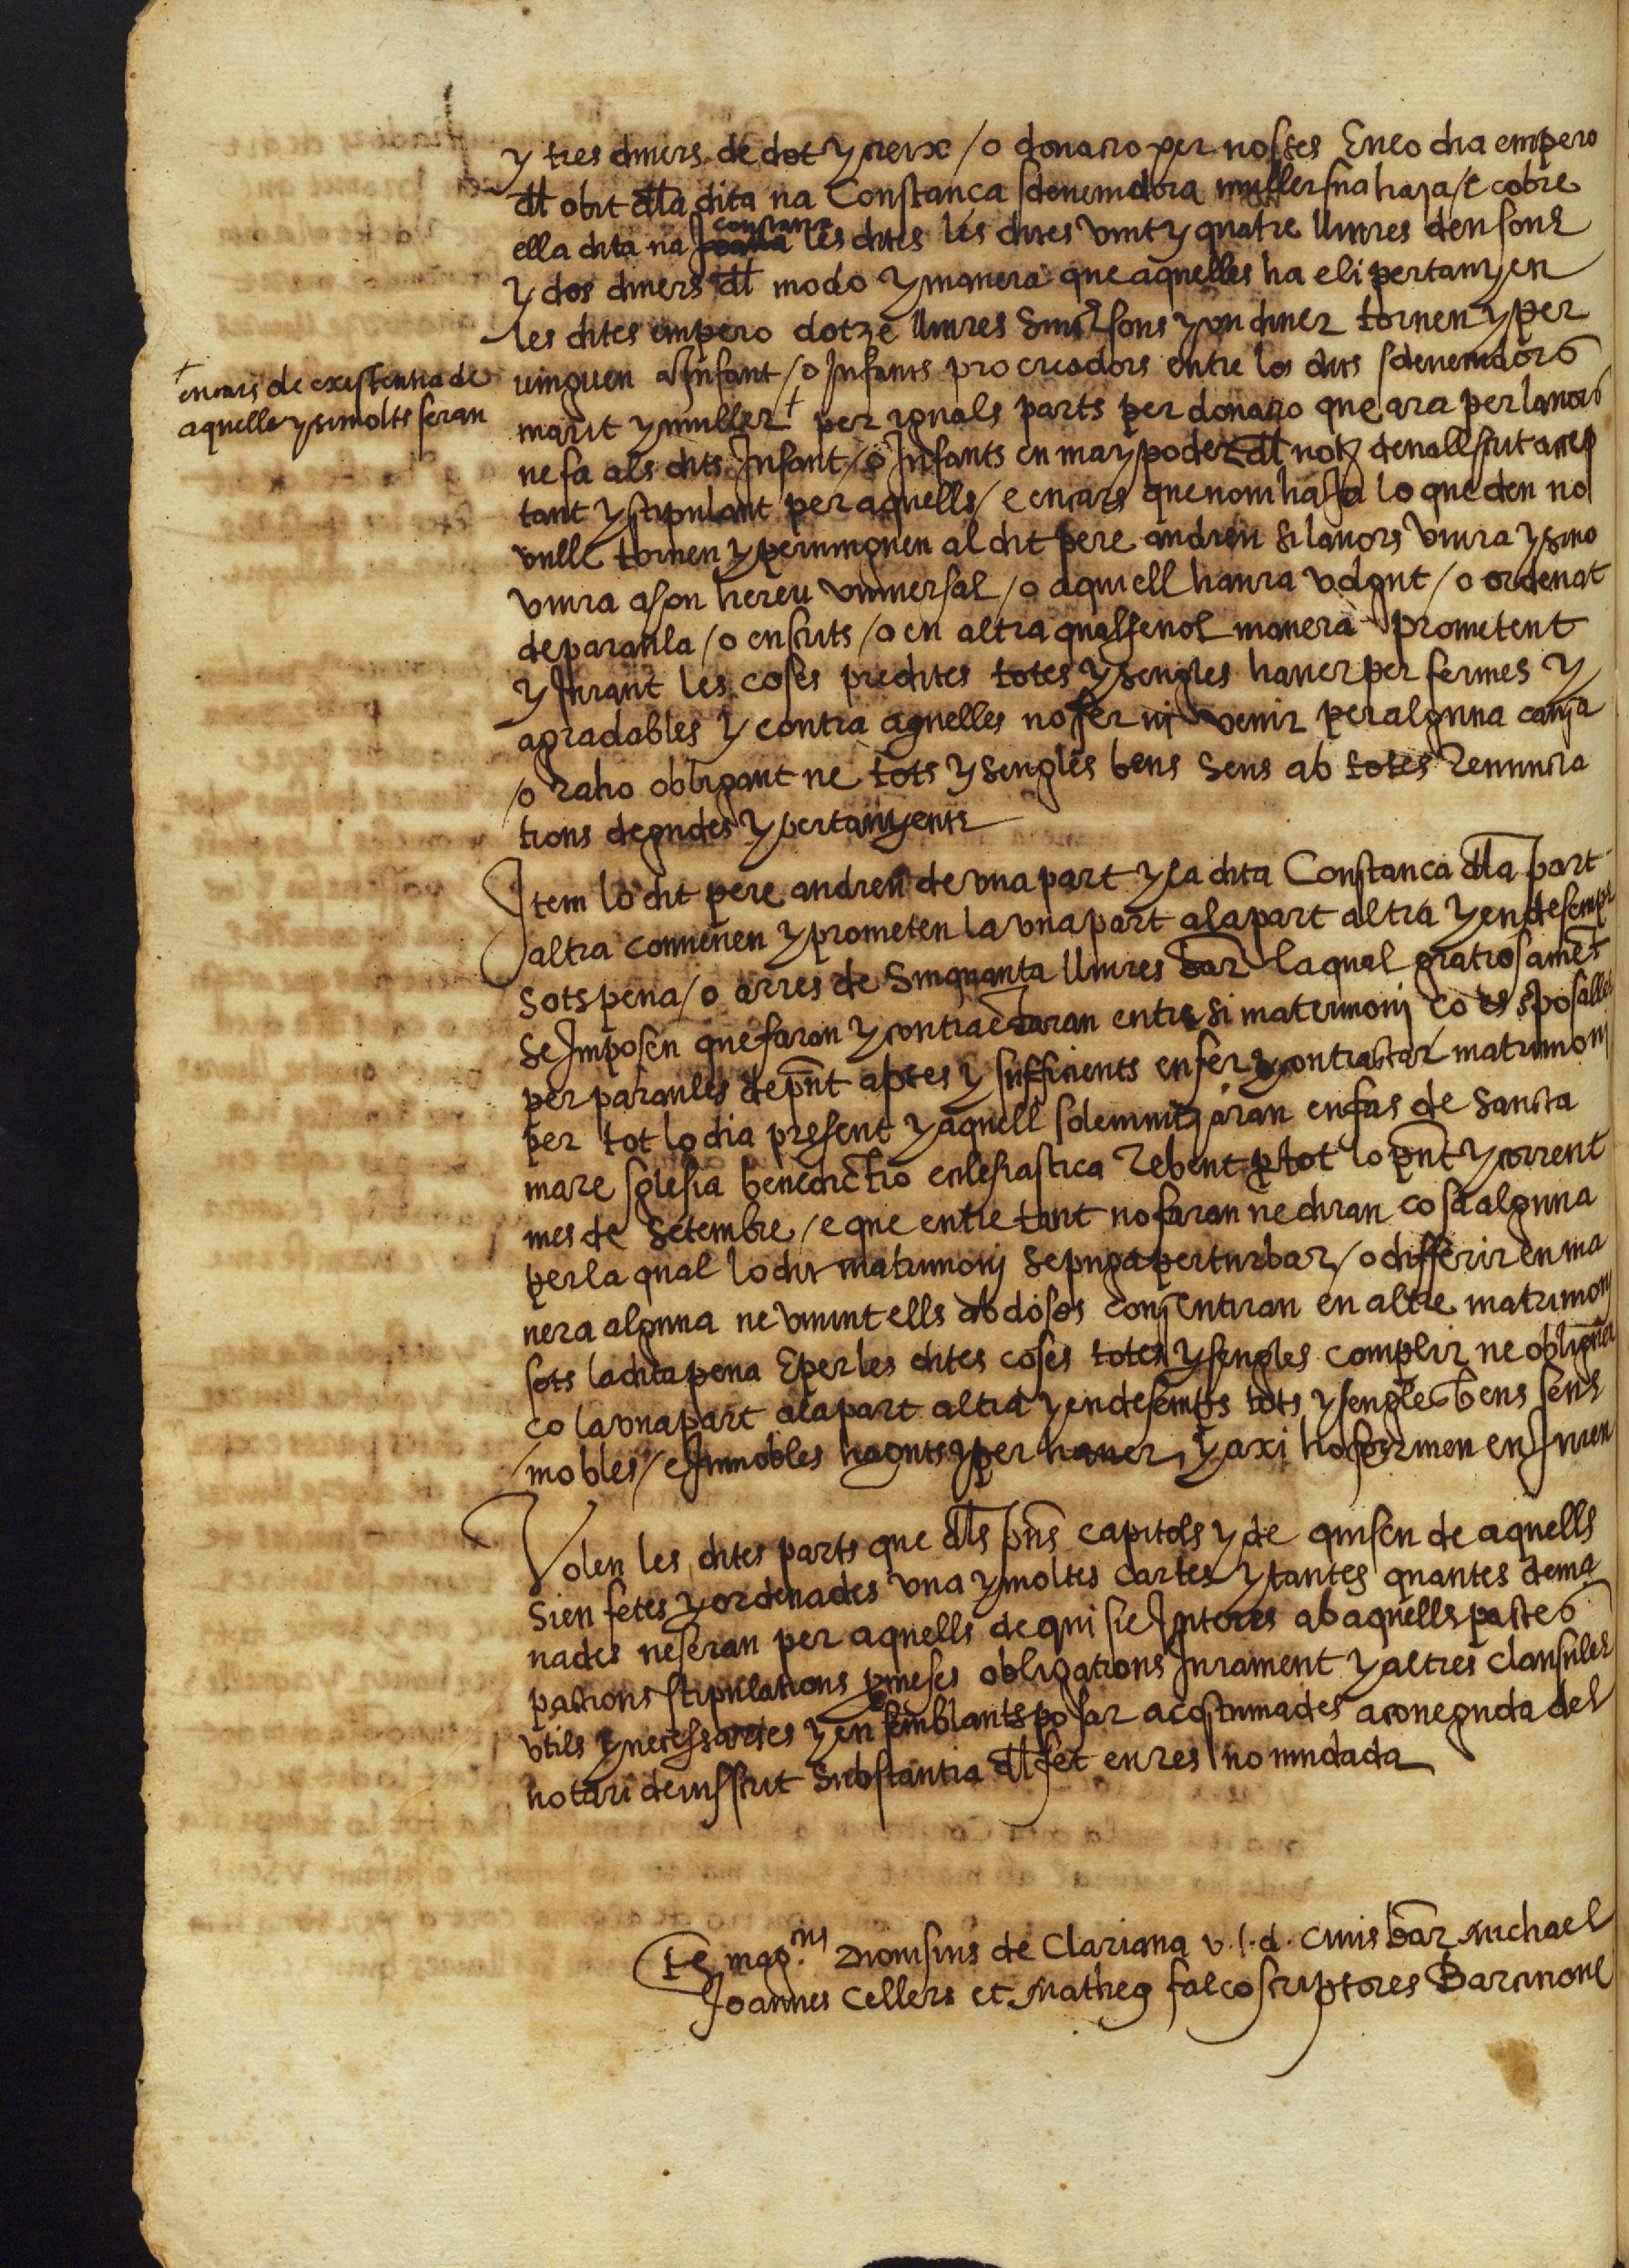 y tres diners de dot y creix / o donatio per nostes E neo dia empero
dll obit dlla dita na Constança sdevenidora muller sua haja / e cobre
ella dita na constança les dites les dites vint y quatre lliures deu sous
y dos diners dll modo y manera que aquelles ha e li pertanyen
les dites empero dotze lliures sinch sous y un diner tornen y per
vinguen a Infant / o Infants procreadors entre los dits sdevenidors
+ en cars de existentia de
aquells y si molts seran
marit y muller + per iguals parts per donatio que ara per lavors
ne fa als dits Infant / o Infants en ma y poder dll not devall scrit accep
tant y stipulant per aquells / e en cars que nom haja lo que deu no
vulle tornen y pervinguen al dit pere andreu si lavors viura y sino
viura a son hereu universal / o aquell haura volgut / o ordenat
de paraula / o en scrits / o en altra qualsevol manera prometent
y Jurant les coses predites totes y sengles haver per fermes y
agradables y contra aquelles no fer ni venir per alguna causa
/o raho obligant ne tots y sengles bens seus ab totes renuncia
tions degudes y pertanyents
Item lo dit pere andreu de una part y la dita Constança dlla part
altra convenen y prometen la una part a la part altra y endesemps
sots pena / o arres de sinquanta lliures bar la qual gratiosament
se Imposen que faran y contractaran entre si matermoni ço es sposalles
per paraules de pnt aptes y sufficients en fer y contractar matrimoni
per tot lo dia present y aquell solemnizaran en fas de sancta
mare sglesia benedictio eclesiastica rebent p tot lo pnt y corrent
mes de Setembre / e que entre tant no faran ne diran cosa alguna
per la qual lo dit matrimoni se puga perturbar / o differir en ma
nera alguna ne vivint ells abdosos consentiran en altre matrimoni
sots la dita pena E per les dites coses totes y sengles complir ne obliguen
ço la una part a la part altra y endesemps tots y sengles bens seus
mobles / e Immobles haguts y per haver y axi ho fermen en Juren
Volen les dites parts que dlls pns capitols y de quiscu de aquells
sien fetes y ordenades una y moltes cartes y tantes quantes dema
nades ne seran per aquells de qui sie Interes ab aquells pactes
pactions stipulations pmeses obligations Jurament y altres clausules
utils y necessaries y en semblants posar acostumades a coneguda del
notari deius scrit substantia dll fet en res no mudada
Ts mag.ci Dionisius de Clariana v. J. d. civis bar Michael
Joannes Cellers et Matheus falco scriptores Barcinone